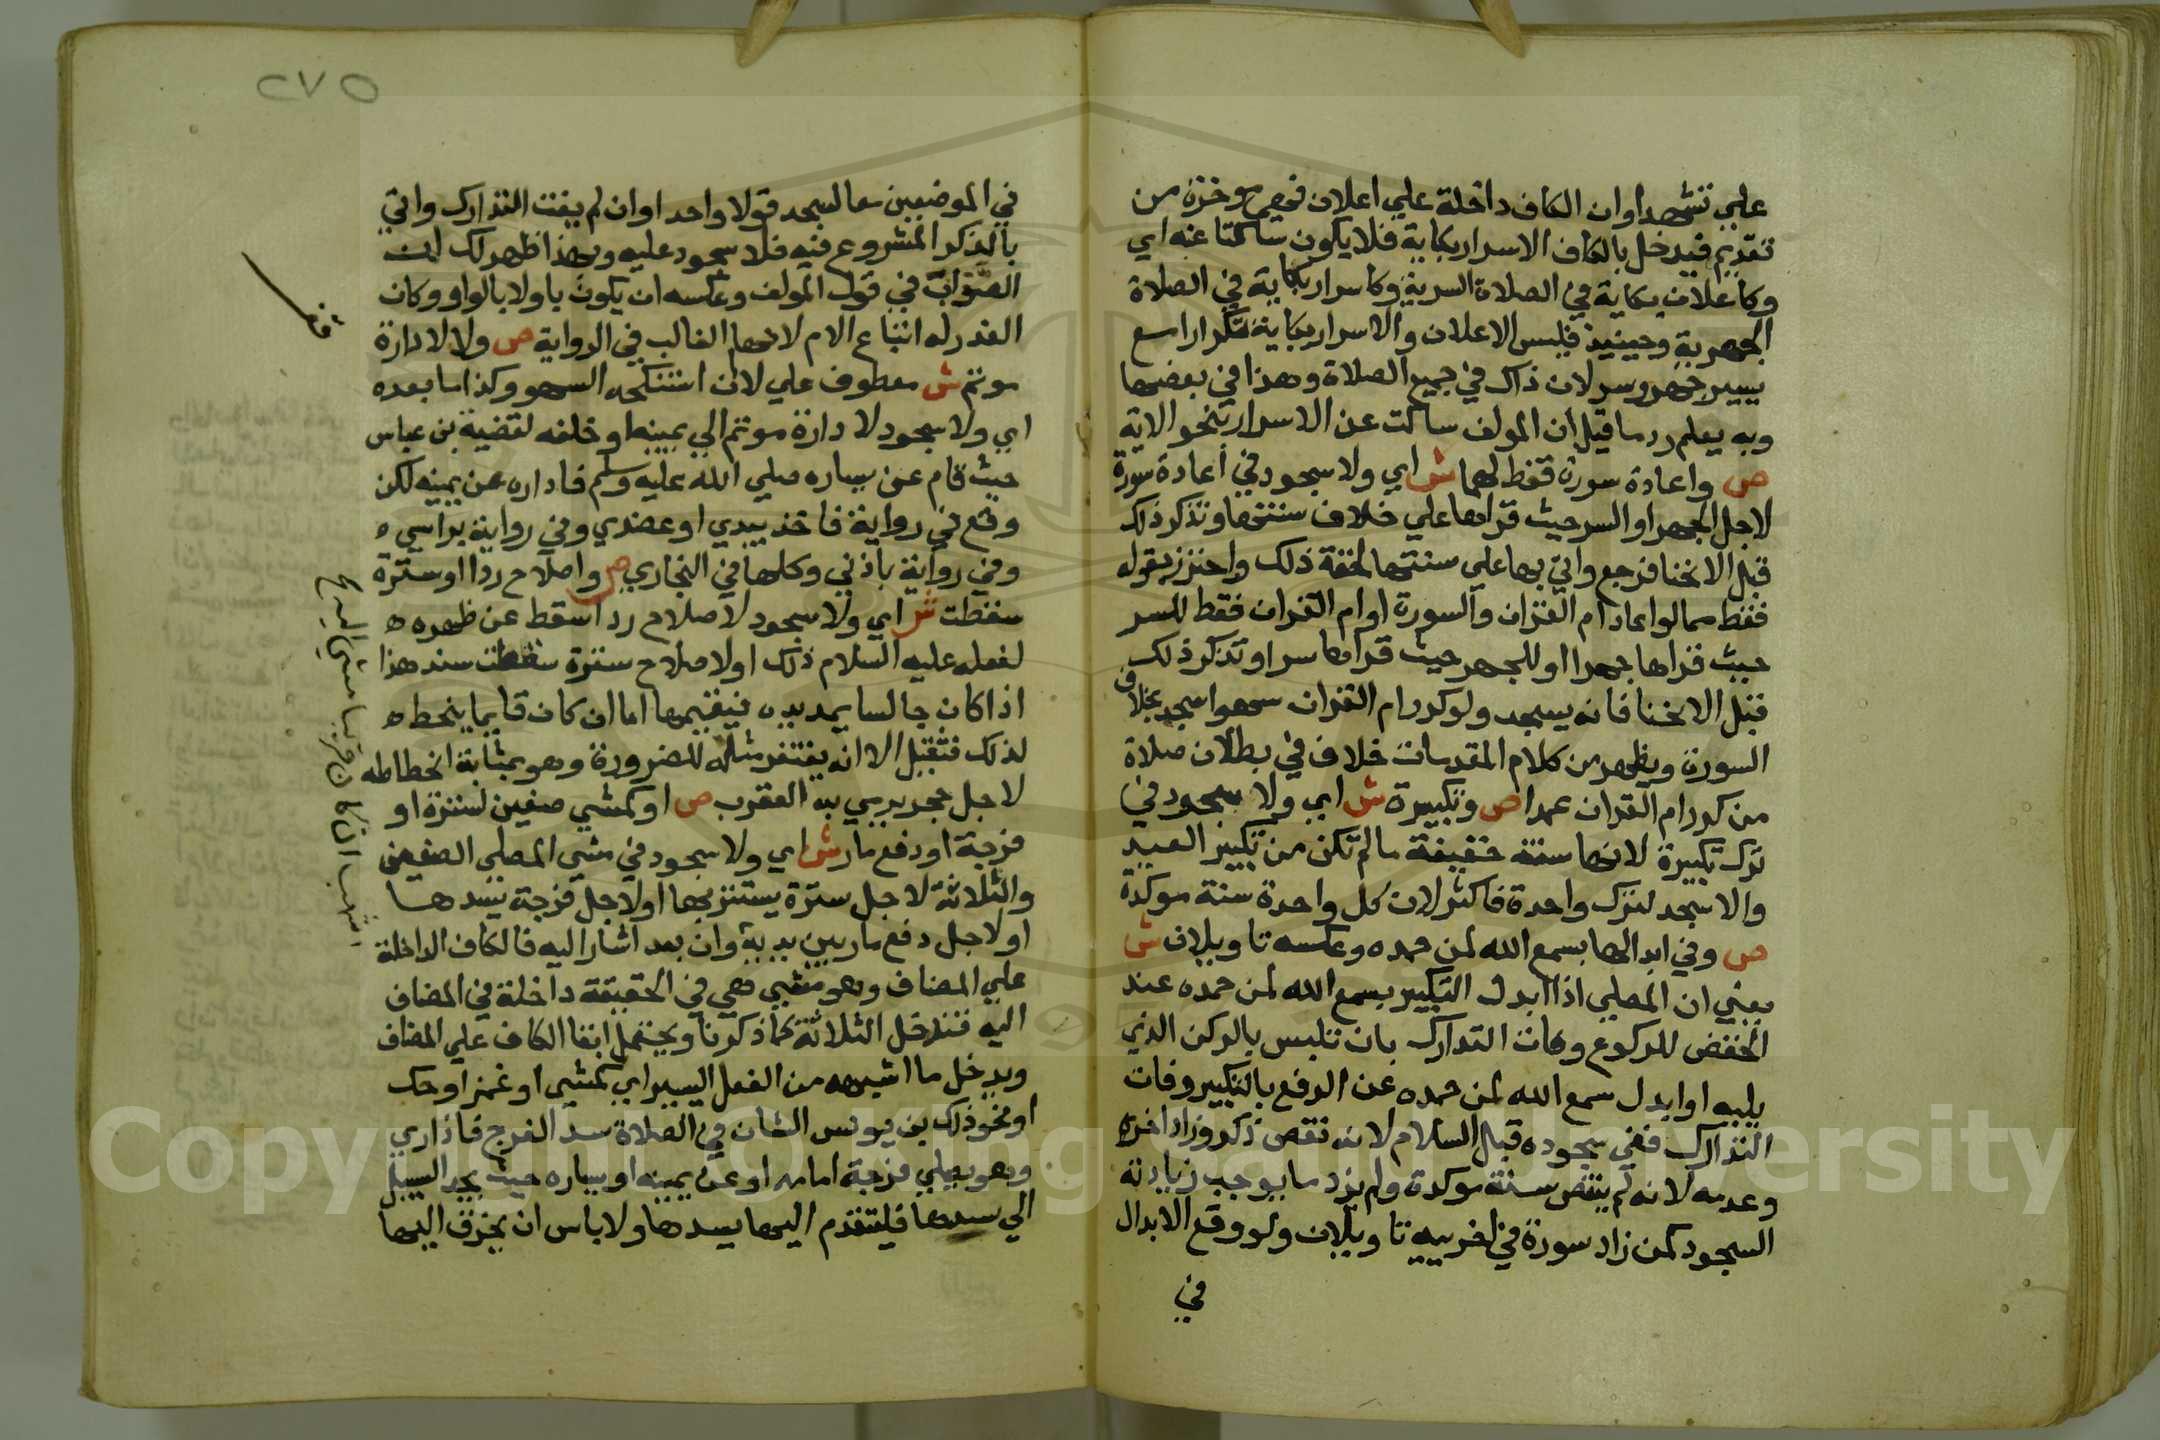 علي تشهد او ان الكاف داخلة علي اعلان فهي موخرة من
تقديم فيدخل بالكاف الاسرار بكاية فلا يكون ساكتا عنه اي
وكاعلان بكاية في الصلاة السرية وكاسرار بكاية في الصلاة
الجهرية وحينيذ فليس الاعلان والاسرار بكاية تكرارا مع
يسير جهر وسر لان ذاك في جميع الصلاة وهذا في بعضها
وبه يعلم رد ما قيل ان المولف ساكت عن الاسرار بنحو الاية
ص واعادة سورة فقط لهما ش اي ولا سجود في اعادة سورة
لاجل الجهر او السر حيث قراها علي خلاف سنتها وتذكر ذلك
قبل الانحنا فرجع واتي بها علي سنتها لخفة ذلك واحترز بقوله
فقط مما لو اعاد ام القران والسورة او ام القران فقط للسر
حيث قراها جهرا او للجهر حيث قراها سرا وتذكر ذلك
قبل الانحنا فانه يسجد ولو كرر ام القران سهوا سجد بخلاف
السورة ويظهر من كلام المقدمات خلاف في بطلان صلاة
من كرر ام القران عمدا ص وتكبيرة ش اي ولا سجود في
ترك تكبيرة لانها سنة خفيفة ما لم تكن من تكبير العيد
والا سجد لترك واحدة فاكثر لان كل واحدة سنة موكدة
ص وفي ابدالها بسمع الله لمن حمده وعكسه تاويلان ش
يعني ان المصلي اذا ابدل التكبير بسمع الله لمن حمده عند
الخفض للركوع وفات التدارك بان تلبس بالركن الذي
يليه او ابدل سمع الله لمن حمده عن الرفع بالتكبير وفات
التدارك ففي سجوده قبل السلام لانه نقص ذكر وزاد اخر
وعدمه لانه لم ينقص سنة موكدة ولم يزد ما يوجب زيادته
السجود كمن زاد سورة في اخرييه تاويلان ولو وقع الابدال
في
٢٧٥
في الموضعين معا لسجد قولا واحدا وان لم يفت التدارك واتي
بالذكر المشروع فيه فلا سجود عليه وبهذا ظهر لك ان
الصواب في قول المولف وعكسه ان يكون باو لا بالواو وكان
العذر له اتباع الام لانها الغالب في الرواية ص ولا لادارة
موتم ش معطوف علي لان استنكحه السهو وكذا ما بعده
اي ولا سجود لادارة موتم الي يمينه او خلفه لقضية بن عباس
حيث قام عن يساره صلي الله عليه وسلم فاداره عن يمينه لكن
وقع في رواية فاخذ بيدي او عضدي وفي رواية براسي ه
وفي رواية باذني وكلها في البخاري ص واصلاح ردا او سترة
سقطت ش اي ولا سجود لاصلاح ردا سقط عن ظهره ه
لفعله عليه السلام ذلك او لاصلاح سترة سقطت سند هذا
اذا كان جالسا يمد يده فيقيمها اما ان كان قايما ينحط ه
لذلك فثقيل الا انه يغتفر مثله للضرورة وهو بمثابة انحطاطه
لاجل حجر يرمي به العقرب ص او كمشي صفين لسترة او
فرجة او دفع مار ش اي ولا سجود في مشي المصلي الصفين
والثلاثة لاجل سترة يستتر بها او لاجل فرجة يسدها
او لاجل دفع مار بين يديه وان بعد اشار اليه فالكاف الداخلة
علي المضاف وهو مشي هي في الحقيقة داخلة في المضاف
اليه فتدخل الثلاثة كما ذكرنا ويحتمل ابقا الكاف علي المضاف
ويدخل ما اشبهه من الفعل اليسير اي كمشي او غمز او حك
او نحو ذلك بن يونس الشان في الصلاة سد الفرج فاذا راي
وهو يصلي فرجة امامه او عن يمينه او يساره حيث يجد السبيل
الي سدها فليتقدم اليها يسدها ولا باس ان يخرق اليها